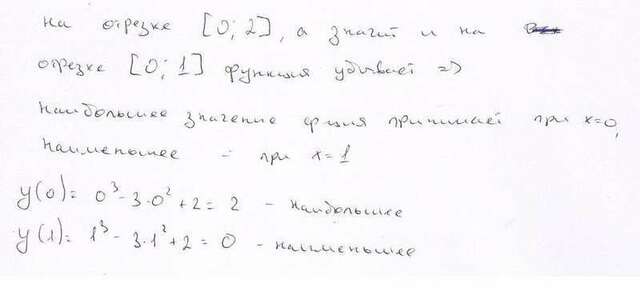 на отрезке [0; 2], а значит и на
отрезке [0; 1] функция убывает =>
наибольшее значение ф-ция принимает при x=0,
наименьшее - при x=1
y(0) = 0³ - 3·0² + 2 = 2 - наибольшее
y(1) = 1³ - 3·1² + 2 = 0 - наименьшее